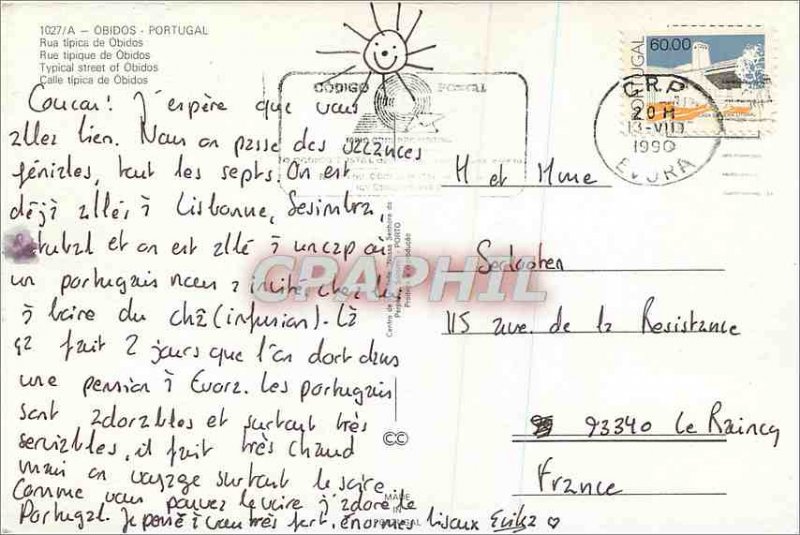 1027/A - ÓBIDOS - PORTUGAL
Rua típica de Óbidos
Rue tipique de Óbidos
Typical street of Óbidos
Calle típica de Óbidos
Coucou! J'espère que vous
allez bien. Nous on passe des vacances
géniales, tout les septs. On est
déjà allés à Lisbonne, Sesimbra,
Setubal et on est allé à un cap où
un portugais nous a invités chez lui
à boire du chá (infusion). Là
ça fait 2 jours que l'on dort dans
une pension à Evora. Les portugais
sont adorables et surtout très
serviables, il fait très chaud
mais on voyage surtout le soir.
Comme vous pouvez le voir j'adore le
Portugal. Je pense à vous très fort. énormes bisoux
CÓDIGO POSTAL
PORTUGAL
60.00
C.R.P.
20 H
13-VIII
1990
EVORA
M et Mme
115 ave. de la Resistance
93340 le Raincy
France
CC
MADE
IN
PORTUGAL
GRAPHIL